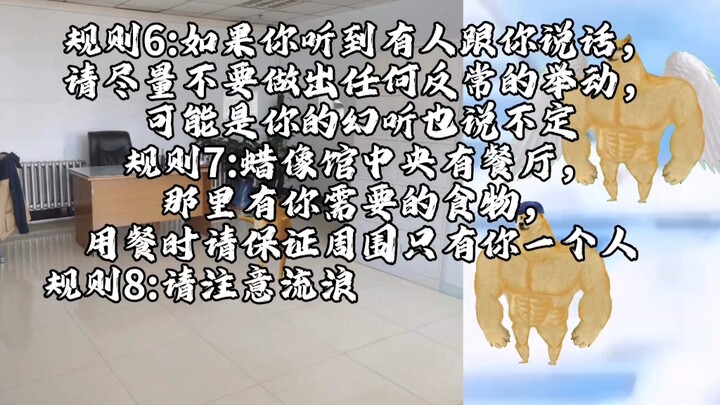 规则6:如果你听到有人跟你说话,
请尽量不要做出任何反常的举动,
可能是你的幻听也说不定
规则7:蜡像馆中央有餐厅,
那里有你需要的食物,
用餐时请保证周围只有你一个人
规则8:请注意流浪